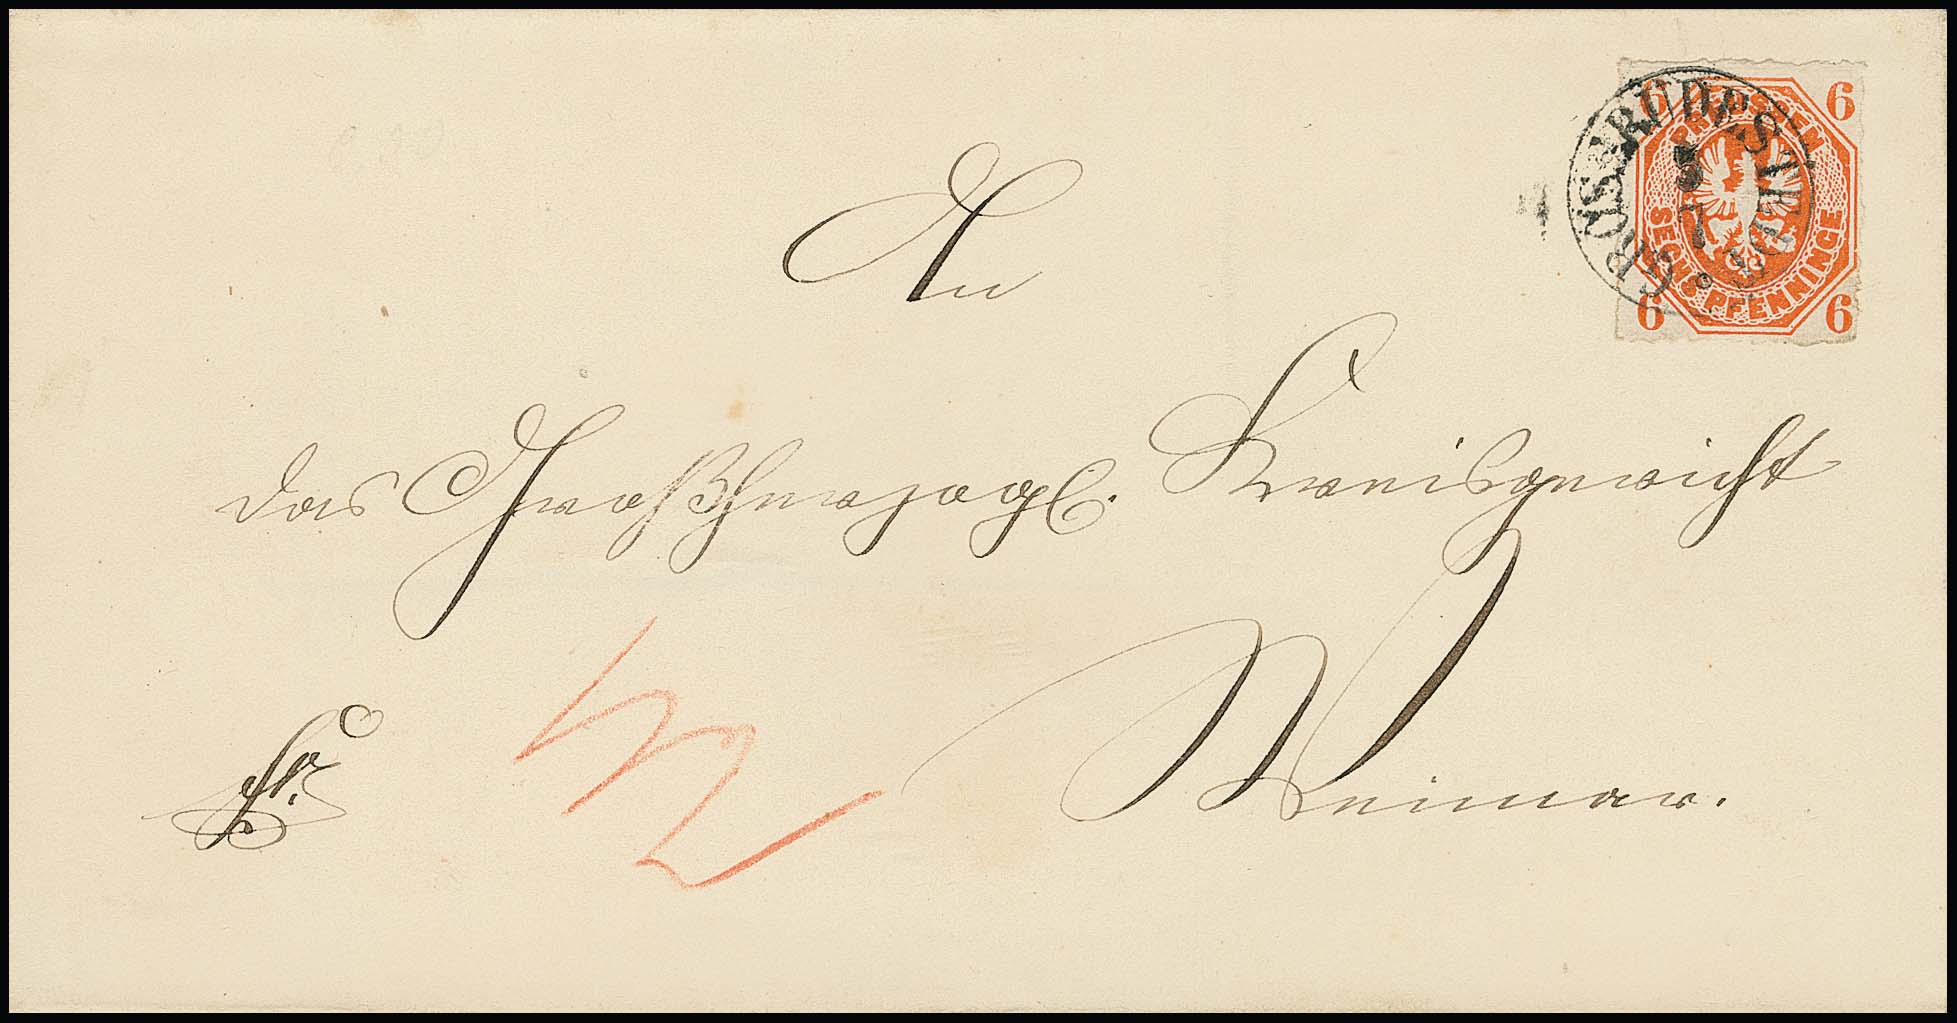 6 6
PREUSSEN
SECHS PFENNINGE
6 6
GROSSRUDESTEDT
5
7
An
das Großherzogl. Kreisgericht
Weimar.
fr.